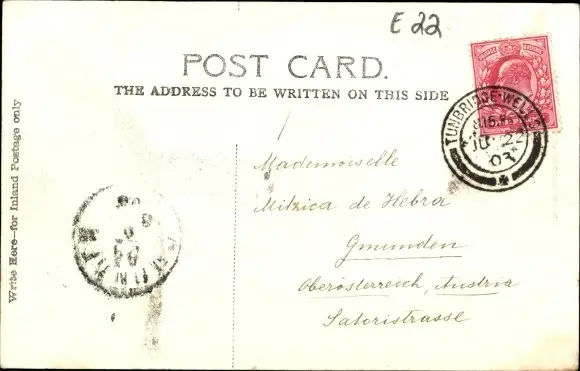 E 22
POST CARD.
THE ADDRESS TO BE WRITTEN ON THIS SIDE
TUNBRIDGE-WELLS
22
03
Write Here—for Inland Postage only
Mademoiselle
Milzica de Hebra
Gmunden
Oberösterreich, Austria
Satoristrasse